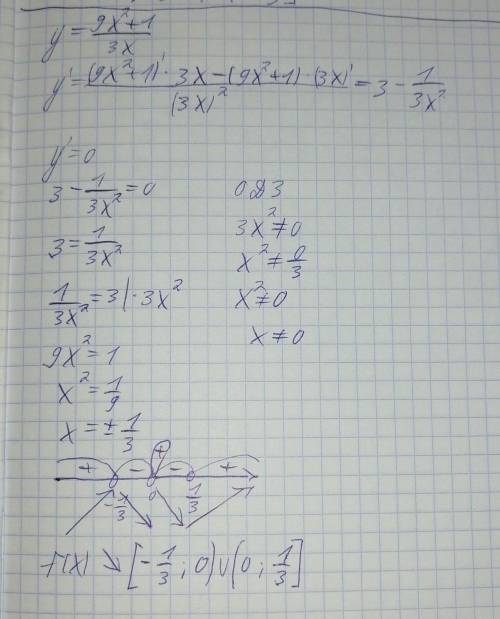 y = (9x²+1)/(3x)
y' = ((9x²+1)' · 3x − (9x²+1) · (3x)')/(3x)² = 3 − 1/(3x²)
y' = 0
3 − 1/(3x²) = 0
3 = 1/(3x²)
1/(3x²) = 3 | · 3x²
9x² = 1
x² = 1/9
x = ± 1/3
ОДЗ
3x² ≠ 0
x² ≠ 0/3
x² ≠ 0
x ≠ 0
+ − + − +
−1/3 0 1/3
f(x) ↘ [−1/3; 0) ∪ (0; 1/3]